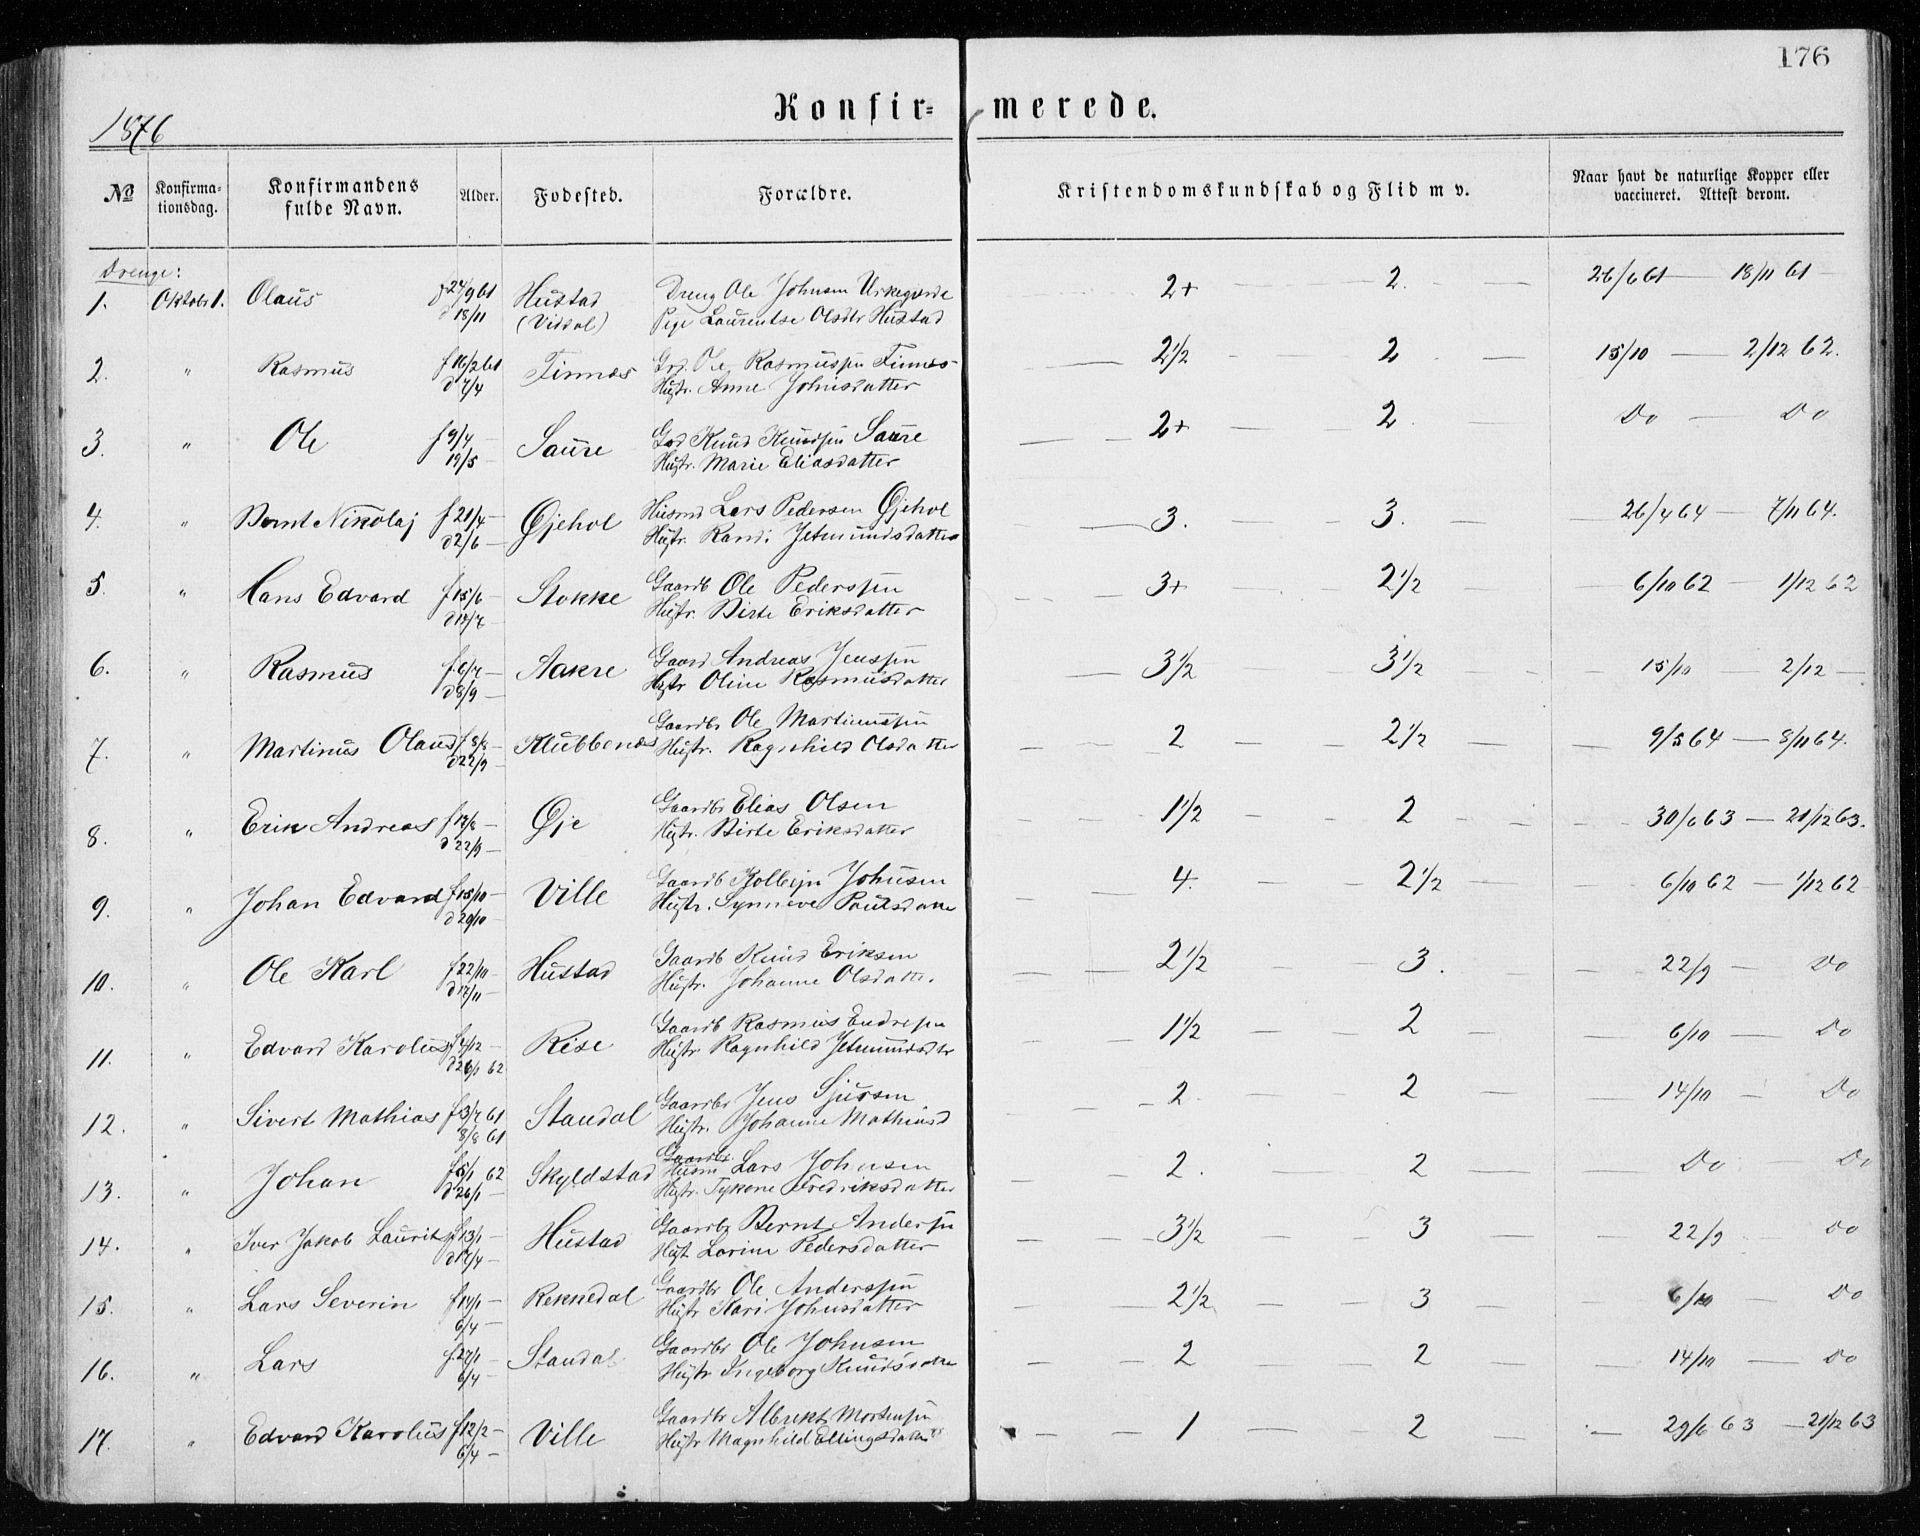 176
1876
Konfir-
merede.
No
Konfirma-
tionsdag.
Konfirmandens
fulde Navn.
Alder.
Fodested.
Forældre.
Kristendomskundskab og Flid m v.
Naar havt de naturlige Kopper eller
vaccineret. Attest derom.
Drenge:
1. Oktobr 1. Olaus f 24/9 61 Hustad Dreng Ole Johnsen 2+ 2. 26/6 61 — 18/11 61
d 18/11 (Viddal) Pige Laurentse Olsdtr Hustad
2. " Rasmus f 16/2 61 Finnæs Grd. Ole Rasmussen Finnes 2 1/2 2 15/10 — 2/12 62.
d 7/4 Hustr. Anne Johnsdatter
3. " Ole f 9/4 — Saure Grd Knud Knudsen Saure 2+ 2 Do — Do
19/5 — Hustr. Marie Eliasdatter
4. " Bernt Nikolaj f 21/4 — Øjehol Husmd Lars Pedersen Øjehol 3. 3. 26/4 64 — 7/11 64.
d 2/6 — Hustr. Randi Jetmundsdatter
5. " Hans Edvard f 15/6 — Stokke Gaardb Ole Pedersen 3+ 2 1/2 6/10 62 — 1/12 62
d 14/7 Hustr. Birte Eriksdatter
6. " Rasmus f. 6/7 — Aakre Gaard Andreas Jenssen 3 1/2 3 1/2 15/10 — 2/12 —
d 8/9 — Hustr Oline Rasmusdatter
7. " Martinus Olaus f 8/8 — Klubbenes Gaardbr Ole Martinussen 2 2 1/2 9/5 64 — 8/11 64.
d 22/9 Hustr. Ragnhild Olsdatter
8. " Erik Andreas f 12/8 — Øje Gaardbr Elias Olsen 1 1/2 2 30/6 63 — 21/12 63.
d 22/9 — Hustr. Birte Eriksdatter
9. " Johan Edvard f 15/10 — Ville Gaardb Kolbejn Johnsen 4. 2 1/2 6/10 62 — 1/12 62
d 20/10 Hustr. Synneve Paulsdatter
10. " Ole Karl f 22/10 — Hustad Gaardb Knud Eriksen 2 1/2 3. 22/9 — Do
d 17/11 Hustr. Johanne Olsdatter.
11. " Edvard Karolus f 4/12 — Rise Gaardb Rasmus Endresen 1 1/2 2 6/10 — Do
d 26/1 62 Hustr Ragnhild Jetmundsdtr
12. " Sivert Mathias f 3/7 61 Standal Gaardbr Jens Sjursen 2. 2 14/10 — Do
8/8 61 Hustr. Johanne Mathiasd
Gaardbr.
13. " Johan f 5/1 62 Skyldstad Husm Lars Johnsen 2. 2 Do — Do
d 26/1 — Hustr. Fredriksdatter
14. " Iver Jakob Laurits f 13/1 — Hustad Gaardbr Bernt Andersen 3 1/2 3 22/9 — Do
d 17/4 — Hust Larine Pedersdatter
15. " Lars Severin f 14/1 — Rekkedal Gaardbr Ole Anderssen 2 1/2 3 6/10 — Do
6/4 — Hustr Kari Johnsdatter
16. " Lars f 27/1 — Standal Gaardbr Ole Johnsen 2 2 14/10 — Do
6/4 — Hustr Ingeborg Knudsdatter
17. " Edvard Karolus f 12/2 — Ville Gaardbr Albrekt Mortensen 1 2 29/6 63 — 21/12 63
6/4 — Hustr Magnhild Ellingsdatter